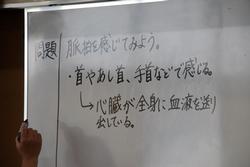 問題 脈拍を感じてみよう。
・首やあし首、手首などで感じる。
↳心臓が全身に血液を送り
出している。